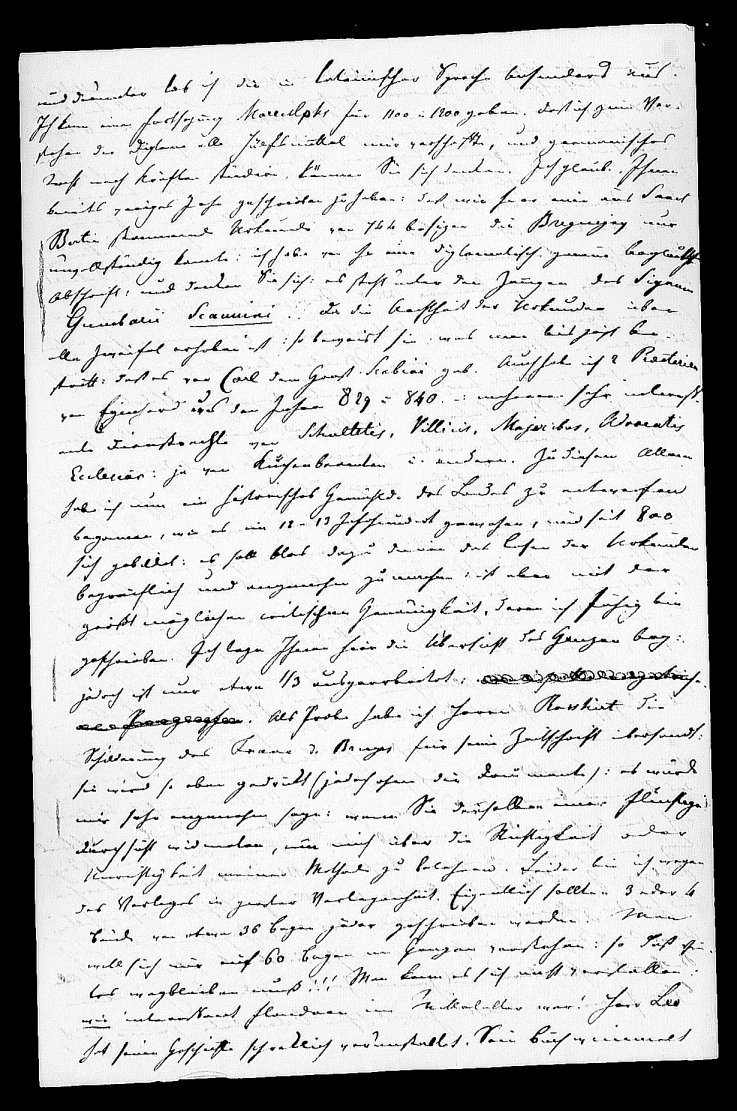 und darunter les ich die in lateinischer Sprache besonders aus.
Ich kann eine Fortsetzung für 1100 – 1200 geben. daß ich zum Ver-
stehen der Diplome alle Hülfsmittel mir verschaffte, und germanisches
Recht nach Kräften studire, können Sie sich denken. Ich glaub Ihnen
bereits voriges Jahr geschrieben zu haben: daß wir hier eine aus Sanct
Bertin stammende Urkunde von 744 besitzen die Bregui nur
unvollständig kannte: ich habe von ihr eine diplomatisch genaue beglaubte
Abschrift: und denken Sie sich: es steht unter den Zeugen das Signum
Gumbarii Scavini. Da die Aechtheit der Urkunden über
alle Zweifel erhoben ist: so beweist sie: was man bis jetzt be-
stritt: daß es vor Carl dem Großen Scabini gab. Auch hab ich 2
von Eginhard aus den Jahren 829 – 840 – mehrere sehr interess-
ante Dienstrechte von Schultetis, Villicis, Majoribus, Advocatis
Ecclesiae: ja von Küchenbeamten u. andern. Zu diesem Allem
habe ich nun ein historisches Gemählde des Landes zu entwerfen
begonnen, wie es im 12 – 13 Jahrhundert gewesen, und seit 800
sich gebildet: es soll blos dazu dienen das Lesen der Urkunden
begreiflich und angenehm zu machen: ist aber mit der
größt möglichen critischen Genauigkeit, deren ich fähig bin
geschrieben. Ich lege Ihnen hier die Übersicht des Ganzen bey:
jedoch ist nur etwa 1/3 ausgearbeitet:
Als Probe habe ich Herrn Rosshirt die
Schilderung des Franc de Bruges für seine Zeitschrift übersandt:
sie wird so eben gedruckt (jedoch ohne die Documente): es würde
mir sehr angenehm seyn: wenn Sie derselben eine flüchtige
Durchsicht widmeten, um mich über die Richtigkeit oder
Unrichtigkeit meiner Methode zu belehren. Leider bin ich wegen
des Verlages in großer Verlegenheit. Eigentlich sollten 3 oder 4
Bände von etwa 36 Bogen jeder geschrieben werden. Man
will sich nur auf 60 Bogen im Ganzen verstehen: so daß
wegbleiben muß!!! Man kann es sich nicht vorstellen:
wie interessant Flandern im Mittelalter war! Herr Leo
hat seine Geschichte schrecklich verunstaltet. Sein Buch wimmelt